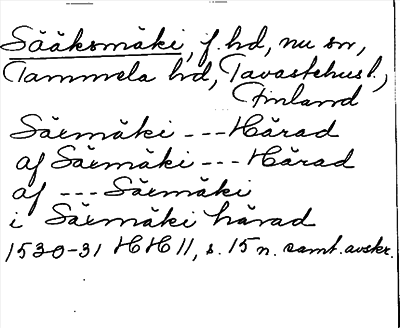 Sääksmäki, f. hd, nu sn,
Tammela hd, Tavastehus l.,
Finland
Säxmäki --- Härad
af Säxmäki --- Härad
af --- Säxmäki
i Säxmäki härad
1530-31 HH II, s. 15 n. samt. avskr.